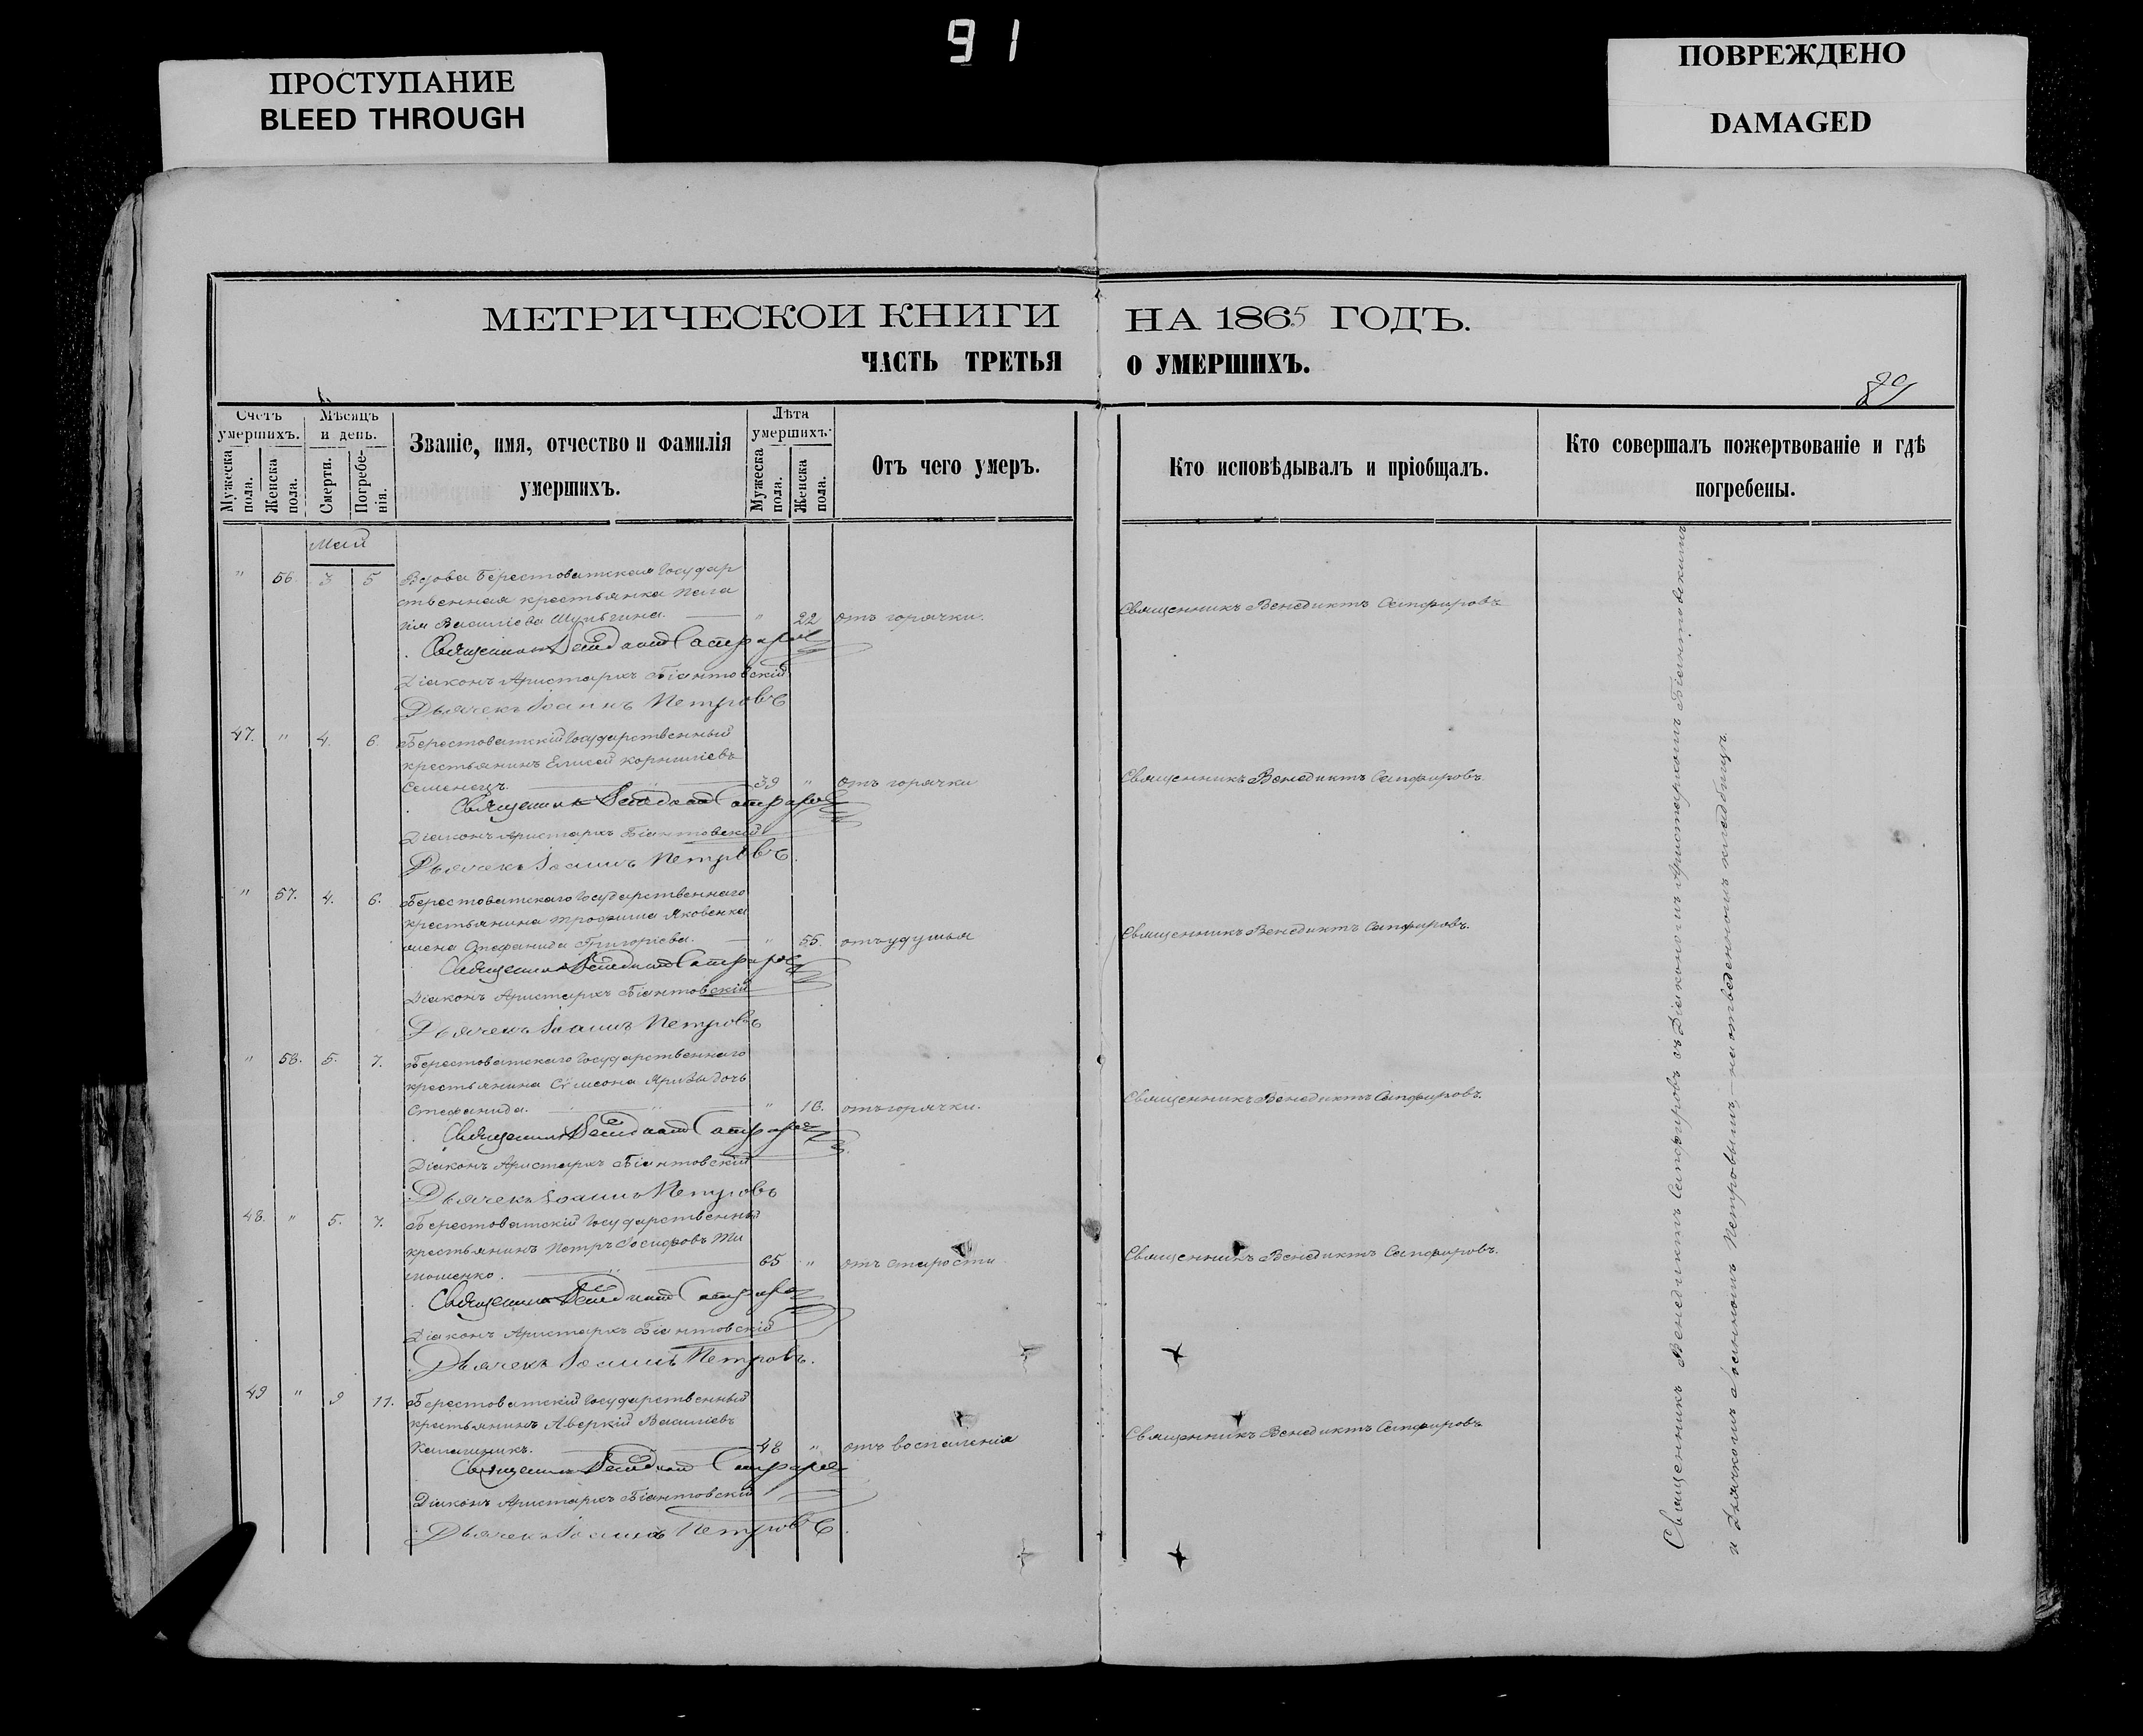 91
ПРОСТУПАНИЕ
BLEED THROUGH
ПОВРЕЖДЕНО
DAMAGED
МЕТРИЧЕСКОЙ КНИГИ НА 1865 ГОДЪ.
ЧАСТЬ ТРЕТЬЯ О УМЕРШИХЪ.
89
Счетъ умершихъ.
Мужеска пола.
Женска пола.
Мѣсяцъ и день.
Смерти.
Погребенія.
Званіе, имя, отчество и фамилія
умершихъ.
Лѣта умершихъ.
Мужеска пола.
Женска пола.
Отъ чего умеръ.
Кто исповѣдывалъ и пріобщалъ.
Кто совершалъ пожертвованіе и гдѣ
погребены.
Май
" 56. 3 5 Вдова Берестоватская Государ
ственная крестьянка Пела
гія Василіева Шульгина. " 22 отъ горячки. Священникъ Венедиктъ Сапфировъ
Священникъ Венедиктъ Сапфировъ
Діаконъ Аристархъ Біантовскій
Дьячекъ Іоаннъ Петровъ
47. " 4. 6. Берестоватскій Государственный
крестьянинъ Елисей Корниліевъ
Семенецъ. 39 " отъ горячки Священникъ Венедиктъ Сапфировъ.
Священникъ Венедиктъ Сапфировъ
Діаконъ Аристархъ Біантовскій
Дьячекъ Іоаннъ Петровъ.
" 57. 4. 6. Берестоватскаго Государственнаго
крестьянина Трофима Яковенка
жена Стефанида Григоріева. " 55. отъ удушья Священникъ Венедиктъ Сапфировъ.
Священникъ Венедиктъ Сапфировъ
Діаконъ Аристархъ Біантовскій
Дьячекъ Іоаннъ Петровъ
" 58. 5. 7. Берестоватскаго Государственнаго
крестьянина Сѵмеона дочь
Стефанида. " 16. отъ горячки. Священникъ Венедиктъ Сапфировъ.
Священникъ Венедиктъ Сапфировъ
Діаконъ Аристархъ Біантовскій
Дьячекъ Іоаннъ Петровъ
48. " 5. 7. Берестоватскій Государственный
крестьянинъ Петръ Іосифовъ Ти
мошенко. 65 " отъ старости Священникъ Венедиктъ Сапфировъ.
Священникъ Венедиктъ Сапфировъ
Діаконъ Аристархъ Біантовскій
Дьячекъ Іоаннъ Петровъ.
49 " 9 11. Берестоватскій Государственный
крестьянинъ Аверкій Василіевъ
48 " отъ воспаленія Священникъ Венедиктъ Сапфировъ
Священникъ Венедиктъ Сапфировъ
Діаконъ Аристархъ Біантовскій
Дьячекъ Іоаннъ Петровъ.
Священникъ Венедиктъ Сапфировъ съ Діакономъ Аристархомъ Біантовскимъ
и Дьячкомъ Іоанномъ Петровымъ, на отведенномъ кладбищѣ.